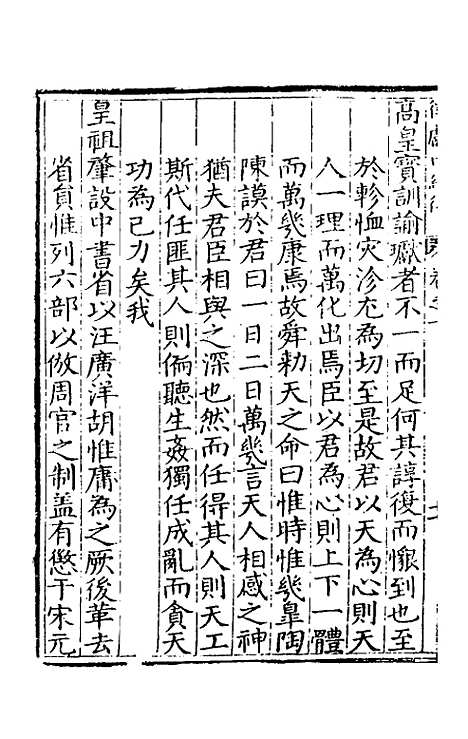 高皇寳訓諭獻者不一而足何其諄復而懇到也至
於軫恤災沴尤為切至是故君以天為心則天
人一理而萬化出焉臣以君為心則上下一體
而萬幾康焉故舜勑天之命曰惟時惟幾臯陶
陳謨於君曰一日二日萬幾言天人相感之神
猶夫君臣相與之深也然而任得其人則天工
斯代任匪其人則偏聽生姦獨任成亂而貪天
功為已力矣我
皇祖肇設中書省以汪廣洋胡惟庸為之厥後革去
省負惟列六部以倣周官之制盖有懲于宋元